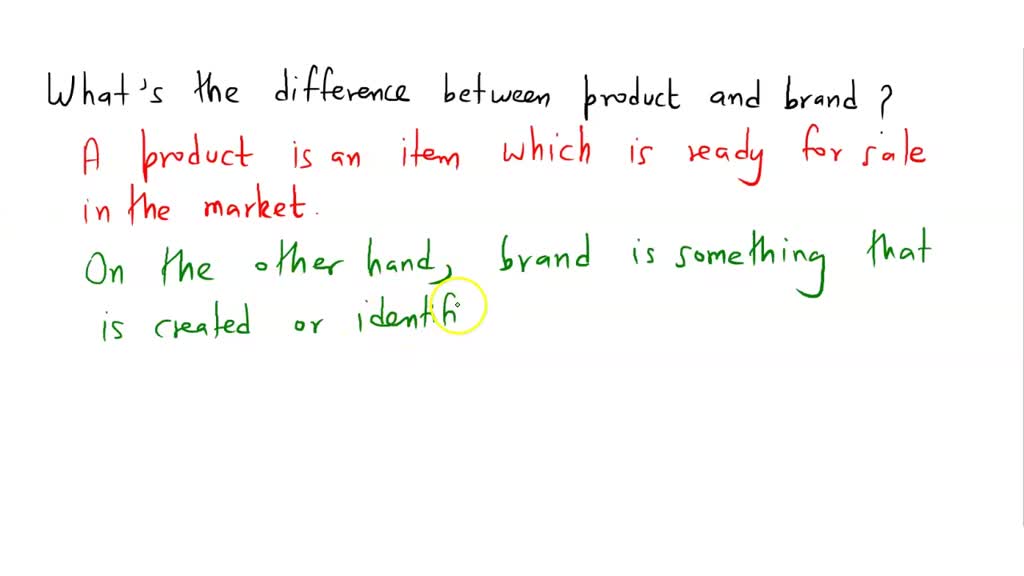 What's the difference between product and brand ?
A product is an item which is ready for sale
in the market.
On the other hand, brand is something that
is created or identifi